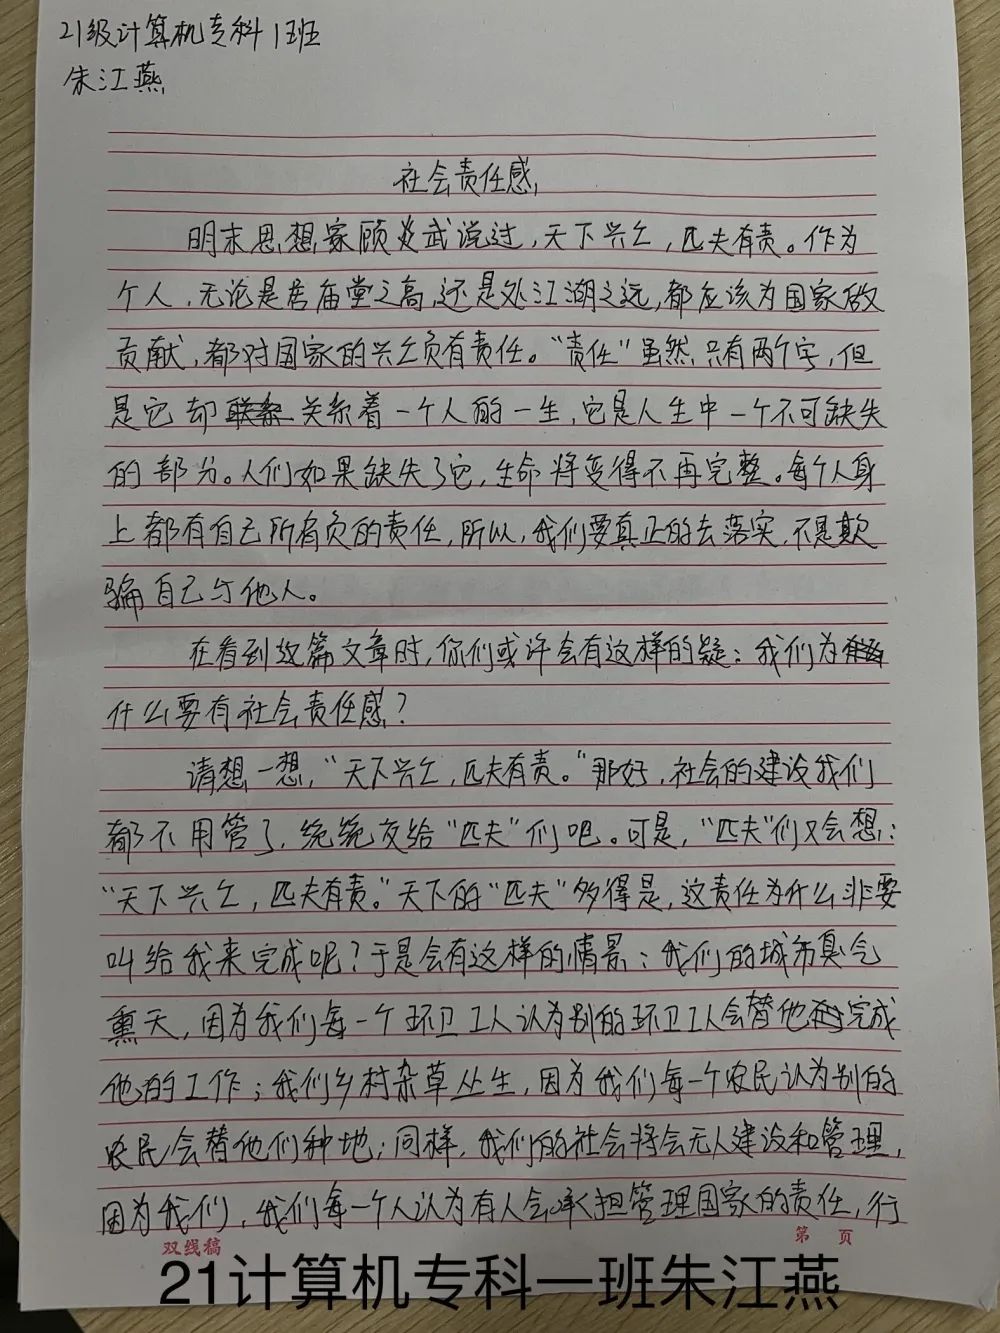 21级计算机专科1班
朱江燕
社会责任感
明末思想家顾炎武说过，天下兴亡，匹夫有责。作为
个人，无论是居庙堂之高，还是处江湖之远，都应该为国家做
贡献，都对国家的兴亡负有责任。“责任”虽然只有两个字，但
是它却关系着一个人的一生，它是人生中一个不可缺失
的部分。人们如果缺失了它，生命将变得不再完整。每个人身
上都有自己所有负的责任，所以，我们要真正的去落实，不是欺
骗自己与他人。
在看到这篇文章时，你们或许会有这样的疑：我们为
什么要有社会责任感？
请想一想，“天下兴亡，匹夫有责。”那好，社会的建设我们
都不用管了，统统交给“匹夫”们吧。可是，“匹夫”们又会想：
“天下兴亡，匹夫有责。”天下的“匹夫”多得是，这责任为什么非要
叫给我来完成呢？于是会有这样的情景：我们的城市臭气
熏天，因为我们每一个环卫工人认为别的环卫工人会替他完成
他的工作；我们乡村杂草丛生，因为我们每一个农民认为别的
农民会替他们种地；同样，我们的社会将会无人建设和管理，
因为我们，我们每一个人认为有人会承担管理国家的责任，行
双线稿
第 页
21计算机专科一班朱江燕